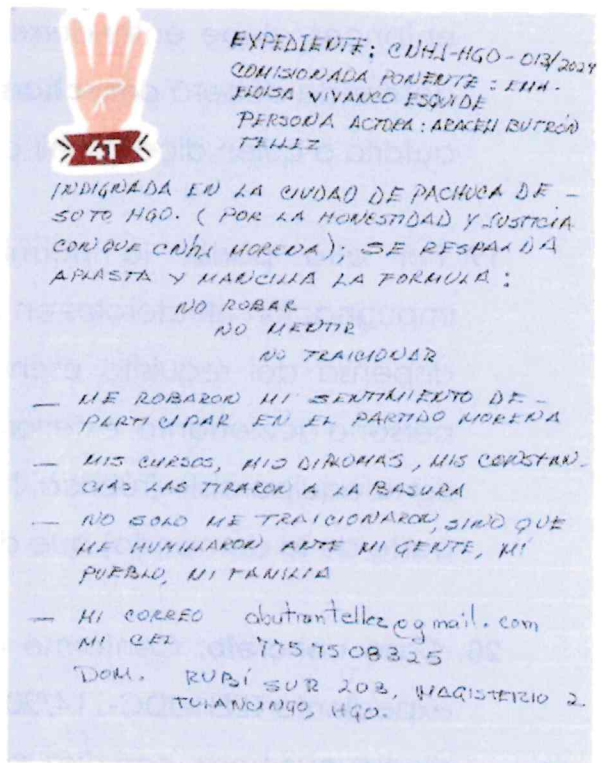 EXPEDIENTE: CNHJ-HGO-013/2024
COMISIONADA PONENTE: EMA-
ELOISA VIVANCO ESQUIDE
PERSONA ACTORA: ARACELI BUTRÓN
TELLEZ
4T
INDIGNADA EN LA CIUDAD DE PACHUCA DE -
SOTO HGO. (POR LA HONESTIDAD Y JUSTICIA
CON QUE CNHJ MORENA) SE RESPALDA
APLASTA Y MANCILLA LA FORMULA:
NO ROBAR
NO MENTIR
NO TRAICIONAR
— ME ROBARON MI SENTIMIENTO DE -
PARTICIPAR EN EL PARTIDO MORENA
— MIS CURSOS, MIS DIPLOMAS, MIS CONSTAN-
CIAS LAS TIRARON A LA BASURA
— NO SOLO ME TRAICIONARON, SINO QUE
ME HUMILLARON ANTE MI GENTE, MI
PUEBLO, MI FAMILIA
— MI CORREO abutrontellez@gmail.com
MI CEL 7757508325
DOM. RUBÍ SUR 203, MAGISTERIO 2
TULANCINGO, HGO.